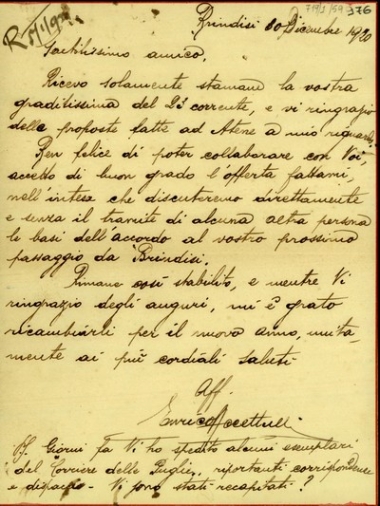 376
R 5/1/921
Brindisi 30 Dicembre 1920
Gentilissimo amico,
Ricevo solamente stamane la vostra
graditissima del 23 corrente, e vi ringrazio
delle proposte fatte ad Atene a mio riguardo.
Ben felice di poter collaborare con Voi,
accetto di buon grado l'offerta fattami,
nell'intesa che discuteremo direttamente
e senza il tramite di alcuna altra persona
le basi dell'accordo al vostro prossimo
passaggio da Brindisi.
Rimane così stabilito, e mentre Vi
ringrazio degli auguri, mi è grato
ricambiarli per il nuovo anno, unita-
mente ai più cordiali saluti
Aff.
Enrico
Giorni fa Vi ho spedito alcuni esemplari
del Corriere delle Puglie, riportanti corrispondenze
e dispacci - Vi sono stati recapitati?